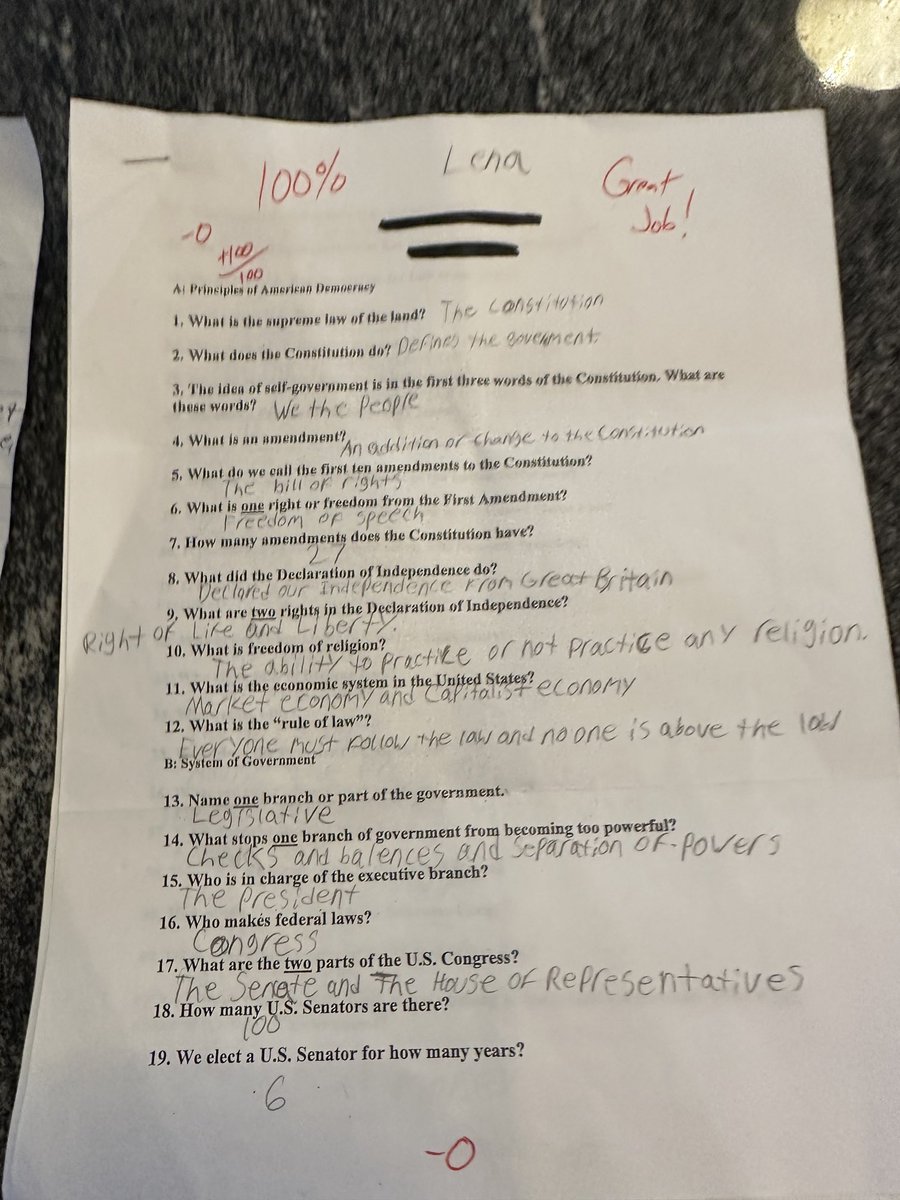 100%
Lena
Great Job!
-0
+100/100
A: Principles of American Democracy
1. What is the supreme law of the land? The Constitution
2. What does the Constitution do? Defines the government.
3. The idea of self-government is in the first three words of the Constitution. What are
these words? We the People
4. What is an amendment? An addition or change to the Constitution
5. What do we call the first ten amendments to the Constitution?
The bill of rights
6. What is one right or freedom from the First Amendment?
Freedom of speech
7. How many amendments does the Constitution have?
27
8. What did the Declaration of Independence do?
Declared our Independence from Great Britain
9. What are two rights in the Declaration of Independence?
Right of Life and Liberty.
10. What is freedom of religion?
The ability to practice or not practice any religion.
11. What is the economic system in the United States?
Market economy and Capitalist economy
12. What is the “rule of law”?
Everyone must follow the law and no one is above the law
B: System of Government
13. Name one branch or part of the government.
Legislative
14. What stops one branch of government from becoming too powerful?
Checks and balences and separation of powers
15. Who is in charge of the executive branch?
The President
16. Who makes federal laws?
Congress
17. What are the two parts of the U.S. Congress?
The Senate and The House of Representatives
18. How many U.S. Senators are there?
100
19. We elect a U.S. Senator for how many years?
6
-0